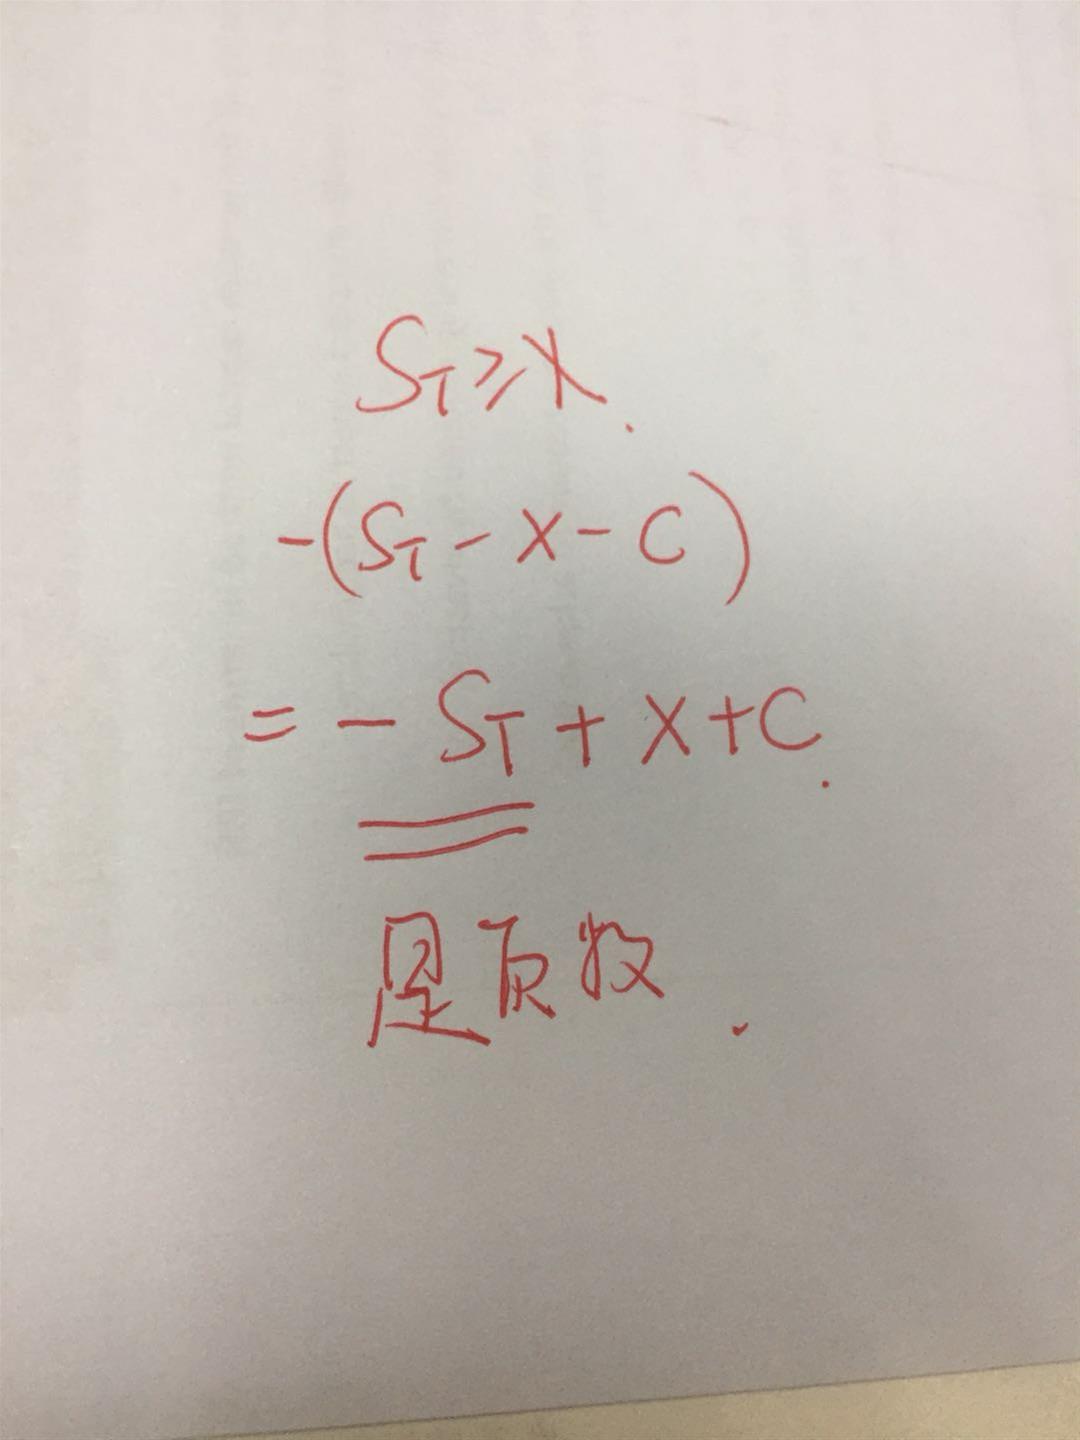 S_T ≥ X.
-(S_T - X - C)
= - S_T + X + C.
是负数.